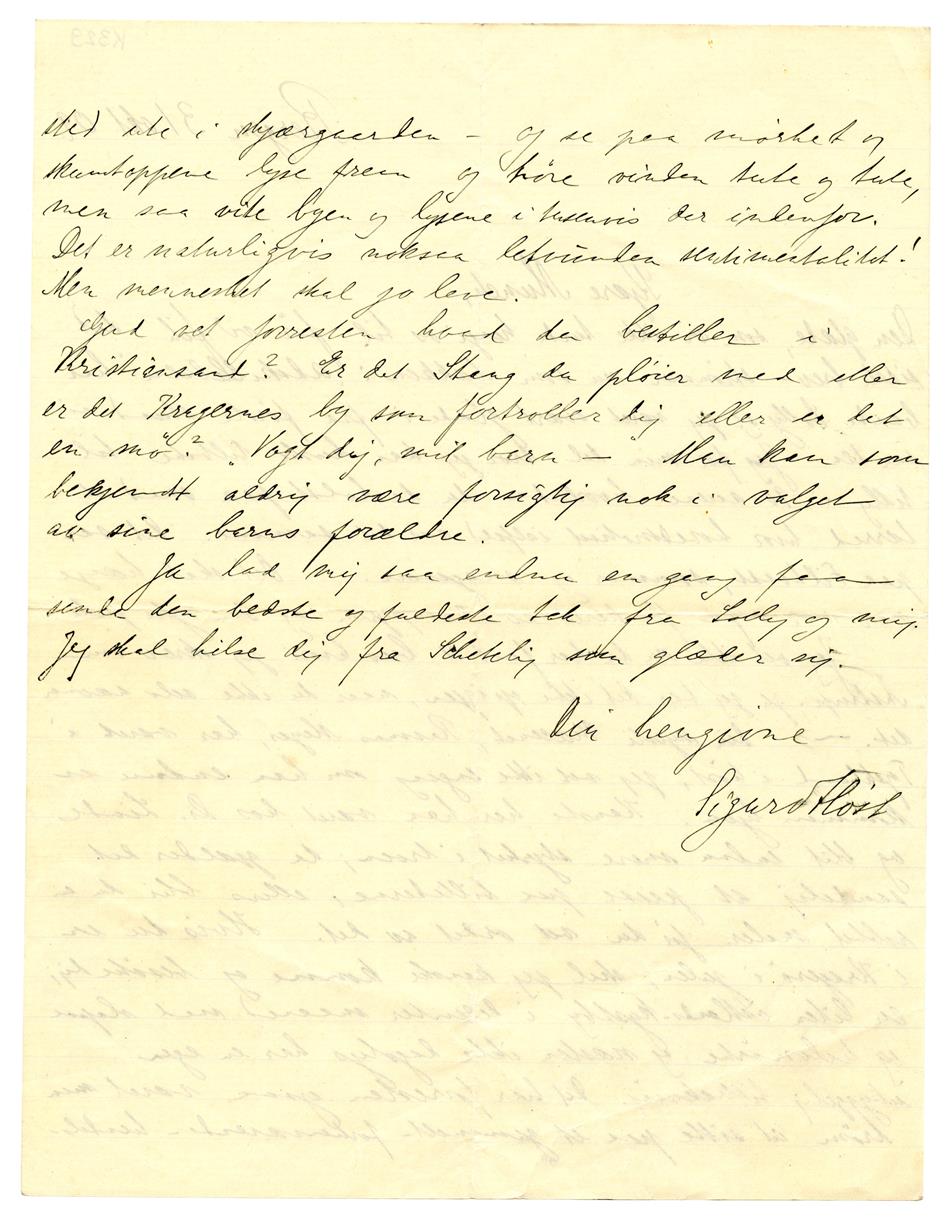 sted ute i skjærgaarden – og se paa mørket og
skumtoppene lyse frem og høre vinden tute og tute,
men saa vite byen og lysene i tusenvis der indenfor.
Det er naturligvis noksaa letvunden sentimentalitet!
Men mennesket skal jo leve.
Gud vet forresten hvad du bestiller i
Kristiansand? Er det Stang du pløier med eller
er det Kragernes by som fortroller dig eller er det
en mø? „Vogt dig, mit barn – " Man kan som
bekjendt aldrig være forsigtig nok i valget
av sine barns forældre.
Ja lad mig saa endnu en gang faa
sende den bedste og fuldeste tak fra Solly og mig.
Jeg skal hilse dig fra som glæder sig.
Din hengivne
Sigurd Høst